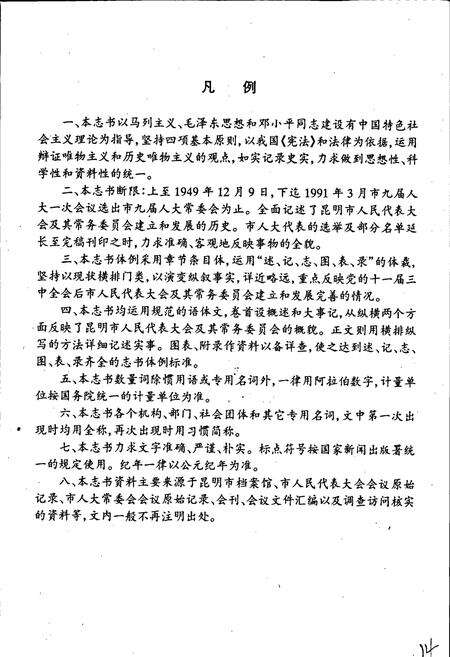 凡 例
一、本志书以马列主义、毛泽东思想和邓小平同志建设有中国特色社
会主义理论为指导,坚持四项基本原则,以我国《宪法》和法律为依据,运用
辩证唯物主义和历史唯物主义的观点,如实记录史实,力求做到思想性、科
学性和资料性的统一。
二、本志书断限:上至1949年12月9日,下迄1991年3月市九届人
大一次会议选出市九届人大常委会为止。全面记述了昆明市人民代表大
会及其常务委员会建立和发展的历史。市人大代表的选举及部分名单延
长至完稿刊印之时,力求准确、客观地反映事物的全貌。
三、本志书体例采用章节条目体,运用“述、记、志、图、表、录”的体裁,
坚持以现状横排门类,以演变纵叙事实,详近略远,重点反映党的十一届三
中全会后市人民代表大会及其常务委员会建立和发展完善的情况。
四、本志书均运用规范的语体文,卷首设概述和大事记,从纵横两个方
面反映了昆明市人民代表大会及其常务委员会的概貌。正文则用横排纵
写的方法详细记述实事。图表、附录作资料以备详查,使之达到述、记、志、
图、表、录齐全的志书体例标准。
五、本志书数量词除惯用语或专用名词外,一律用阿拉伯数字,计量单
位按国务院统一的计量单位为准。
六、本志书各个机构、部门、社会团体和其它专用名词,文中第一次出
现时均用全称,再次出现时用习惯简称。
七、本志书力求文字准确、严谨、朴实。标点符号按国家新闻出版署统
一的规定使用。纪年一律以公元纪年为准。
八、本志书资料主要来源于昆明市档案馆、市人民代表大会会议原始
记录、市人大常委会会议原始记录、会刊、会议文件汇编以及调查访问核实
的资料等,文内一般不再注明出处。
14